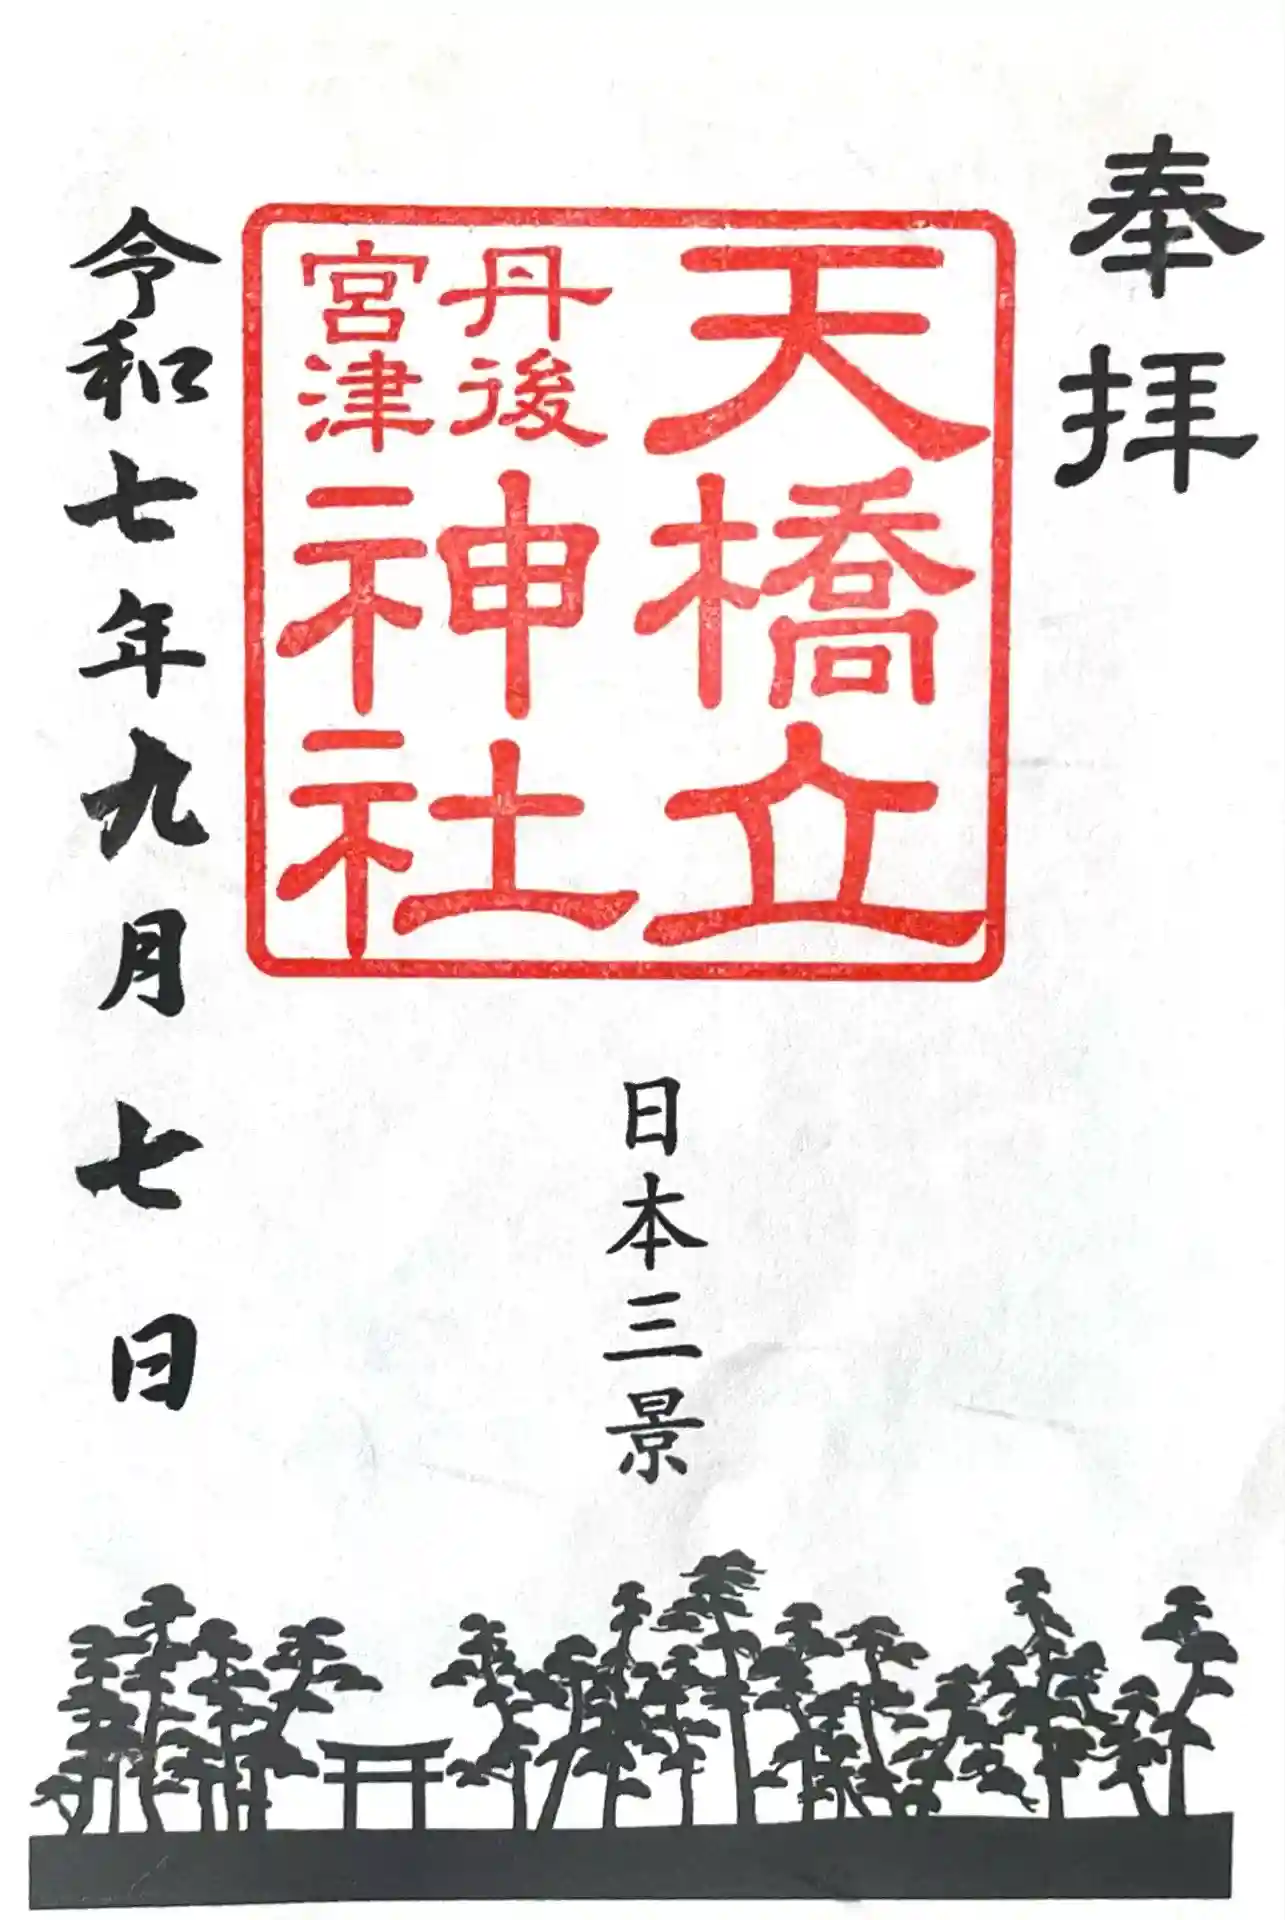 奉拝
天橋立
丹後
宮津
神社
日本三景
令和七年九月七日